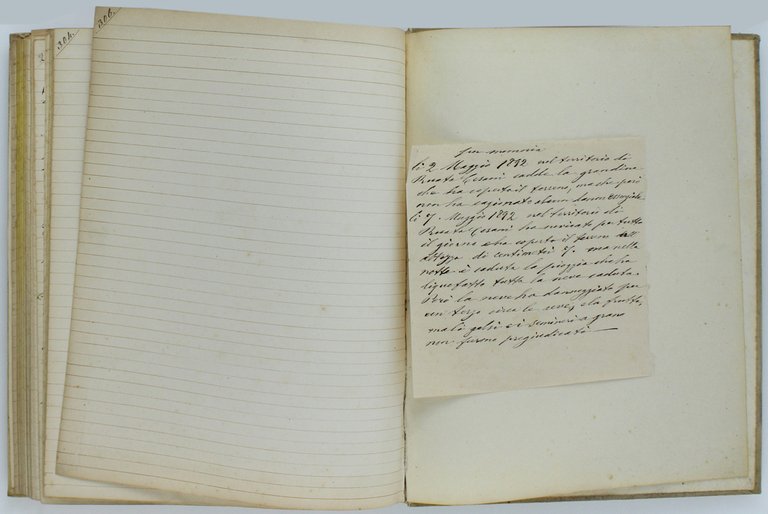 304.
306.
Per memoria
li 2 Maggio 1892 nel territorio di
Ruata Cesani cadde la grandine
che ha coperto il terreno, ma che però
non ha cagionato alcun danno
li 7. Maggio 1892 nel territorio di
Ruata Cesani ha nevicato per tutto
il giorno e ha coperto il terreno all
altezza di centimetri 7. ma nella
notte è caduta la pioggia che ha
liquefatto tutta la neve caduta.
Però la neve ha danneggiato per
un terzo circa le uve, e la frutta,
ma li gelsi e i seminerj a grano
non furono pregiudicati